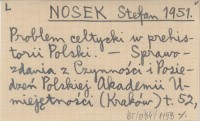 L
NOSEK Stefan 1951.
Problem celtycki w prehis-
torii Polski. — Sprawo-
zdania z Czynności i Posie-
dzeń Polskiej Akademii U-
miejętności (Kraków) t. 52,